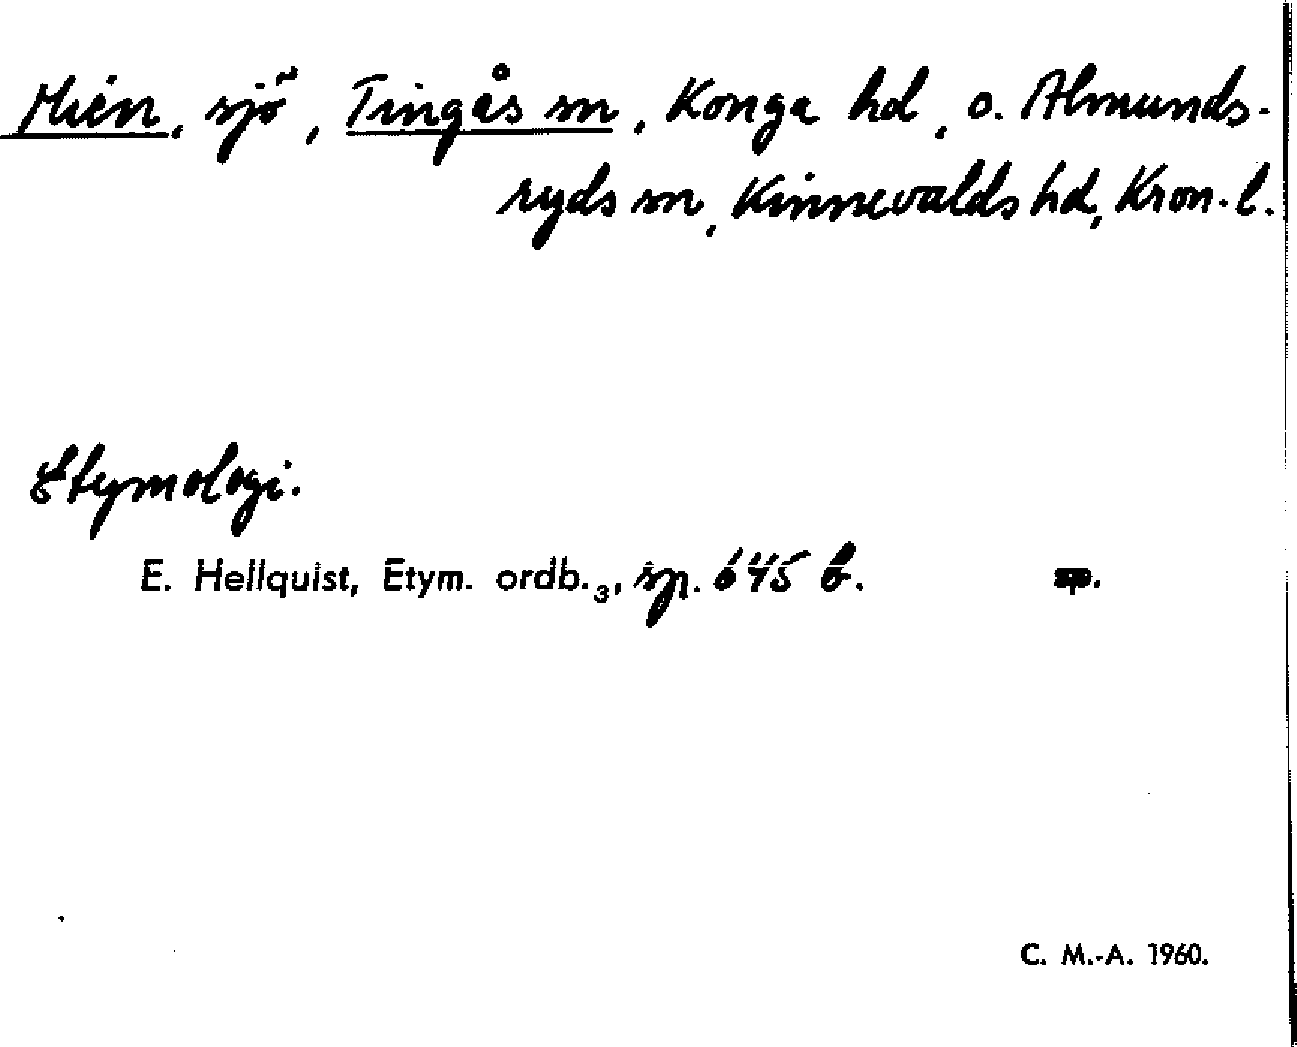 Mien, sjö, Tingås sn, Konga hd, o. Almunds-
ryds sn, Kinnevalds hd, Kron. l.
Etymologi.
E. Hellquist, Etym. ordb.₃, sp. 645 b. sp.
C. M.-A. 1960.